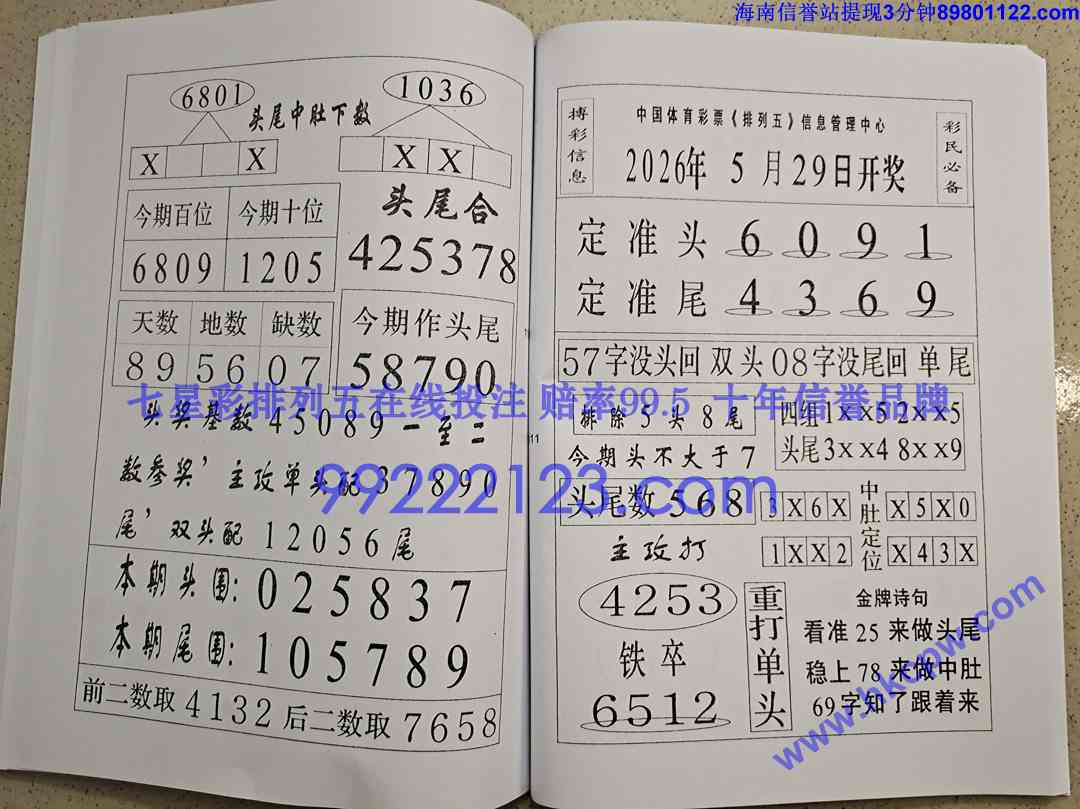 海南信誉站提现3分钟89801122.com
6801
头尾中肚下数
1036
X X
X X
今期百位 今期十位
6809 1205
头尾合
425378
天数 地数 缺数
89 56 07
今期作头尾
58790
七星彩排列五在线投注 赔率99.5 十年信誉品牌
头奖基数45089一至二
数参奖’主攻单头配37890
尾’双头配12056尾
99222123.com
本期头围:025837
本期尾围:105789
前二数取4132后二数取7658
11
搏彩信息
中国体育彩票《排列五》信息管理中心
2026年 5月29日开奖
彩民必备
定准头6091
定准尾4369
57字没头回 双头 08字没尾回 单尾
排除 3 头 8 尾
今期头不大于7
四组1xx5 2xx5
头尾3xx4 8xx9
头尾数568
3X6X
中肚定位
X5X0
主攻打
1XX2
X43X
4253
铁卒
6512
重打单头
金牌诗句
看准25来做头尾
稳上78来做中肚
69字知了跟着来
www.hkcpw.com